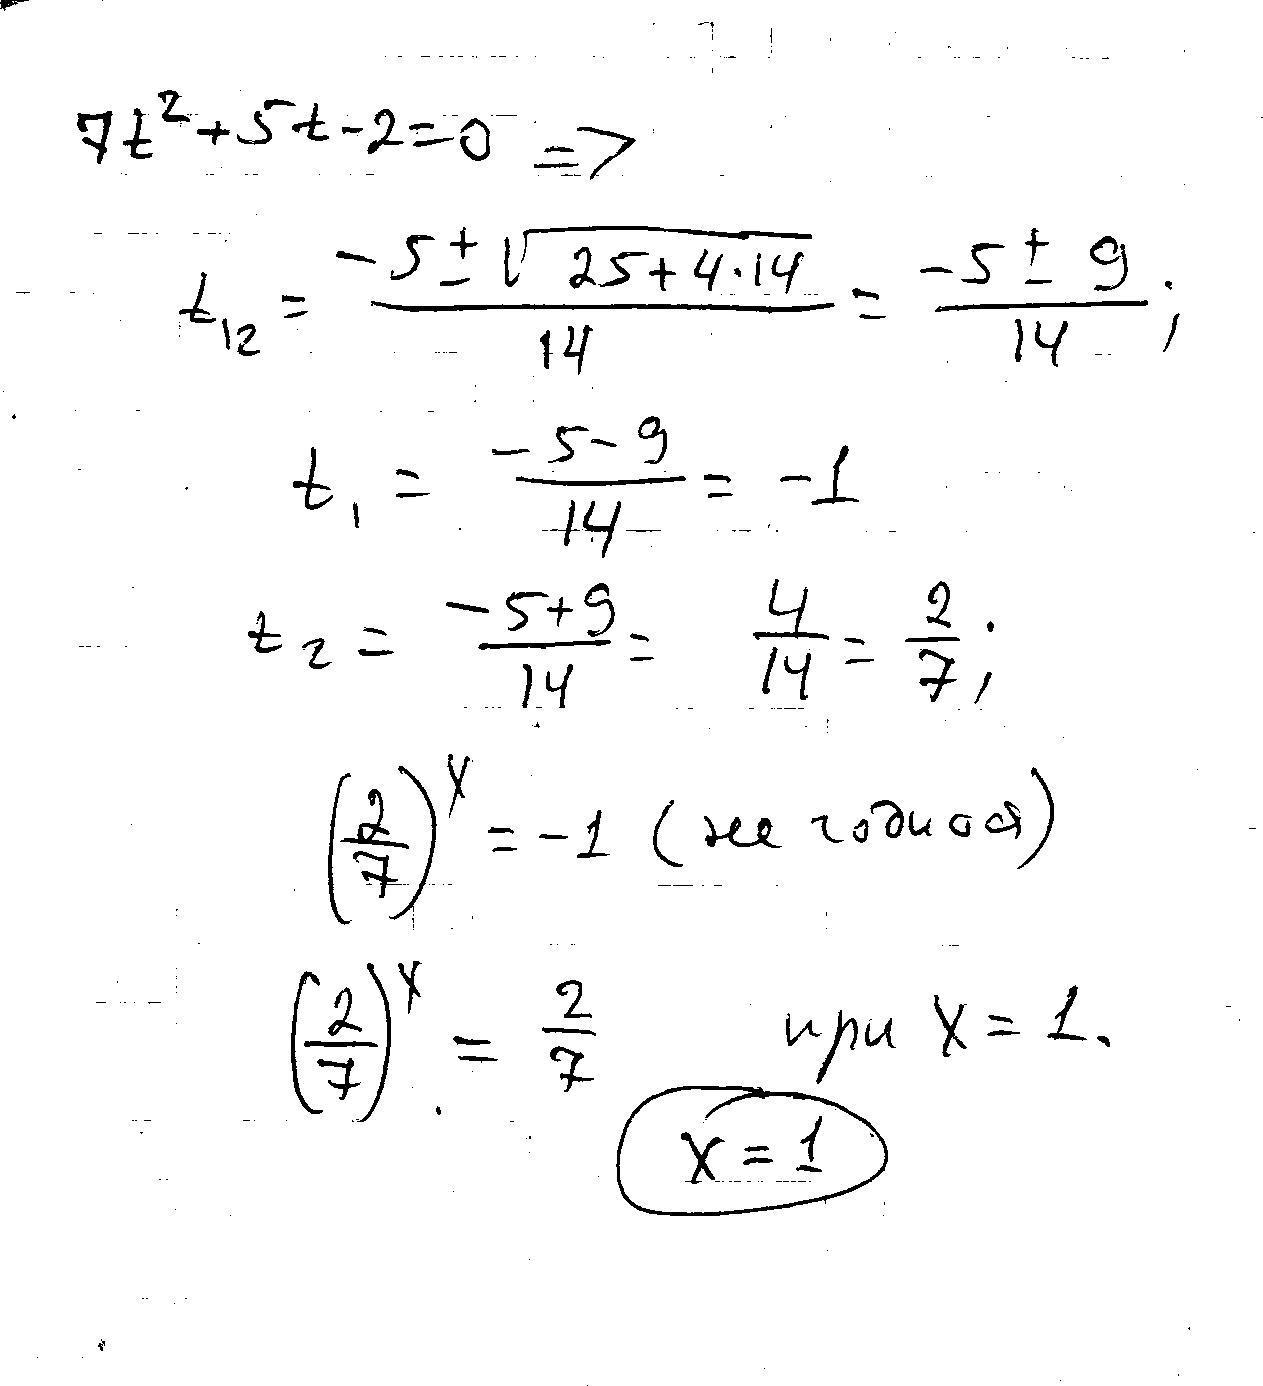 7t²+5t-2=0 =>
t₁₂ = (-5 ± √(25+4·14))/14 = (-5 ± 9)/14;
t₁ = (-5-9)/14 = -1
t₂ = (-5+9)/14 = 4/14 = 2/7;
(2/7)ˣ = -1 (не
(2/7)ˣ = 2/7 при x = 1.
x = 1